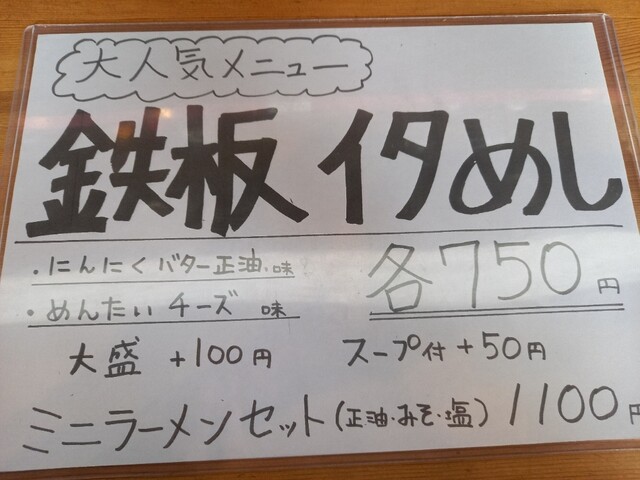 大人気メニュー
鉄板 イタめし
・にんにくバター正油味
・めんたいチーズ 味
各750円
大盛 +100円 スープ付+50円
ミニラーメンセット(正油・みそ・塩) 1100円